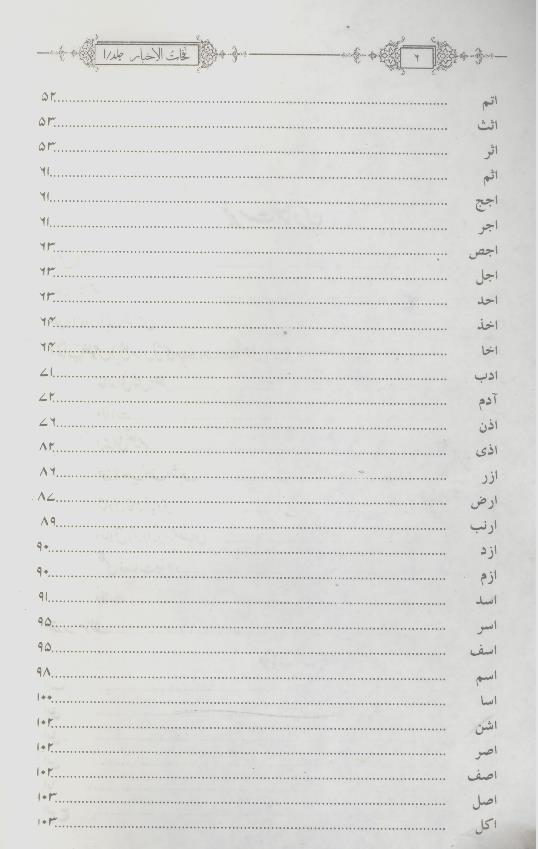 نفحات الأخبار جلد/١
۶
اتم ۵۲
اثث ۵۳
اثر ۵۳
اثم ۶۱
اجج ۶۱
اجر ۶۱
اجص ۶۳
اجل ۶۳
احد ۶۳
اخذ ۶۴
اخا ۶۴
ادب ۷۱
آدم ۷۲
اذن ۷۶
اذی ۸۲
ازر ۸۶
ارض ۸۷
ارنب ۸۹
ازد ۹۰
ازم ۹۰
اسد ۹۱
اسر ۹۵
اسف ۹۵
اسم ۹۸
اسا ۱۰۰
اشن ۱۰۲
اصر ۱۰۲
اصف ۱۰۲
اصل ۱۰۳
اکل ۱۰۳